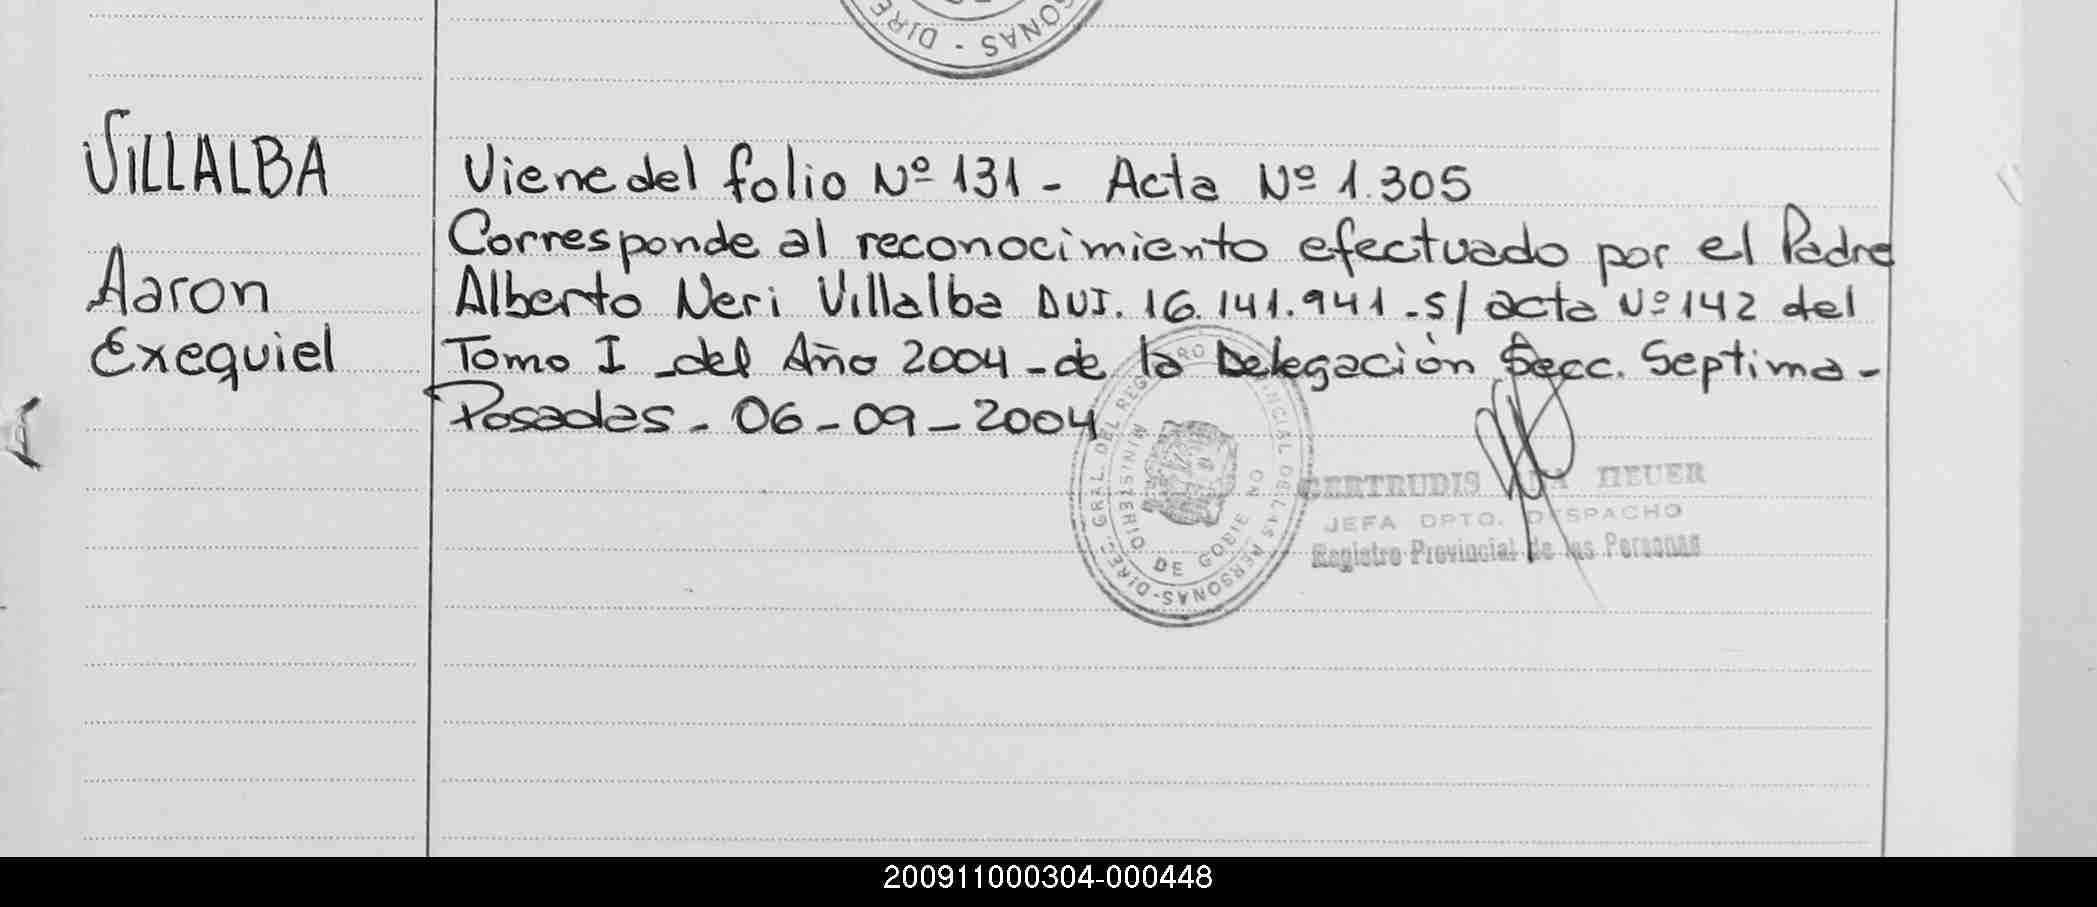 SONAS - DIRE
VILLALBA
Viene del folio Nº 131 - Acta Nº 1.305
Corresponde al reconocimiento efectuado por el Padre
Aaron
Alberto Neri Villalba DUI. 16.141.941 - s/ acta Nº 142 del
Exequiel
Tomo I - del Año 2004 - de la Delegación Secc. Septima -
Posadas - 06 - 09 - 2004
DIREC. GRAL. DEL REGISTRO PROVINCIAL DE LAS PERSONAS -
MINISTERIO DE GOBIERNO
GERTRUDIS HEUER
JEFA DPTO. DESPACHO
Registro Provincial de las Personas
200911000304-000448